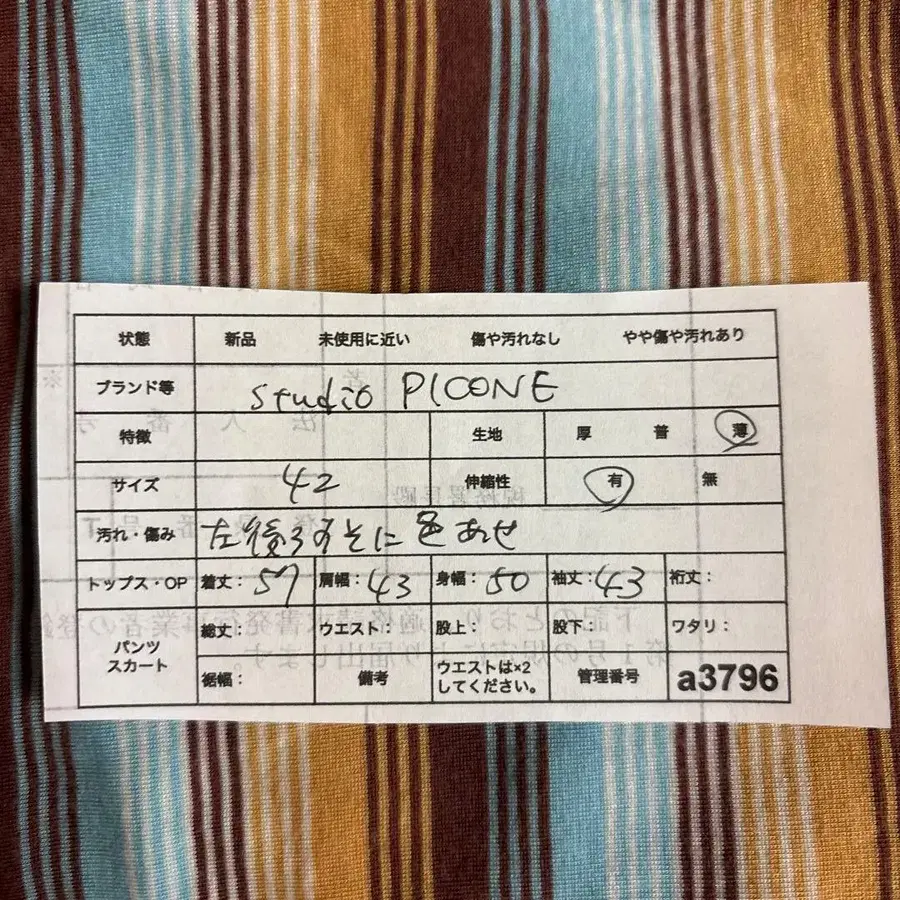 状態 新品 未使用に近い 傷や汚れなし やや傷や汚れあり
ブランド等 studio PICONE
特徴 生地 厚 普 薄
サイズ 42 伸縮性 有 無
汚れ・傷み 左後ろみそに色あせ
トップス・OP 着丈：57 肩幅：43 身幅：50 袖丈：43 裄丈：
パンツ スカート 総丈： ウエスト： 股上： 股下： ワタリ：
裾幅： 備考 ウエストは×2 してください。 管理番号 a3796